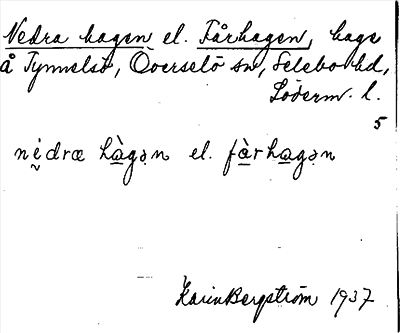 Nedra hagen el. Fårhagen, hage
å Tynnelsö, Överselö sn, Selebo hd,
Söderm. l.
5
nèdræ hàgən el. fàrhagən
Karin Bergström 1937